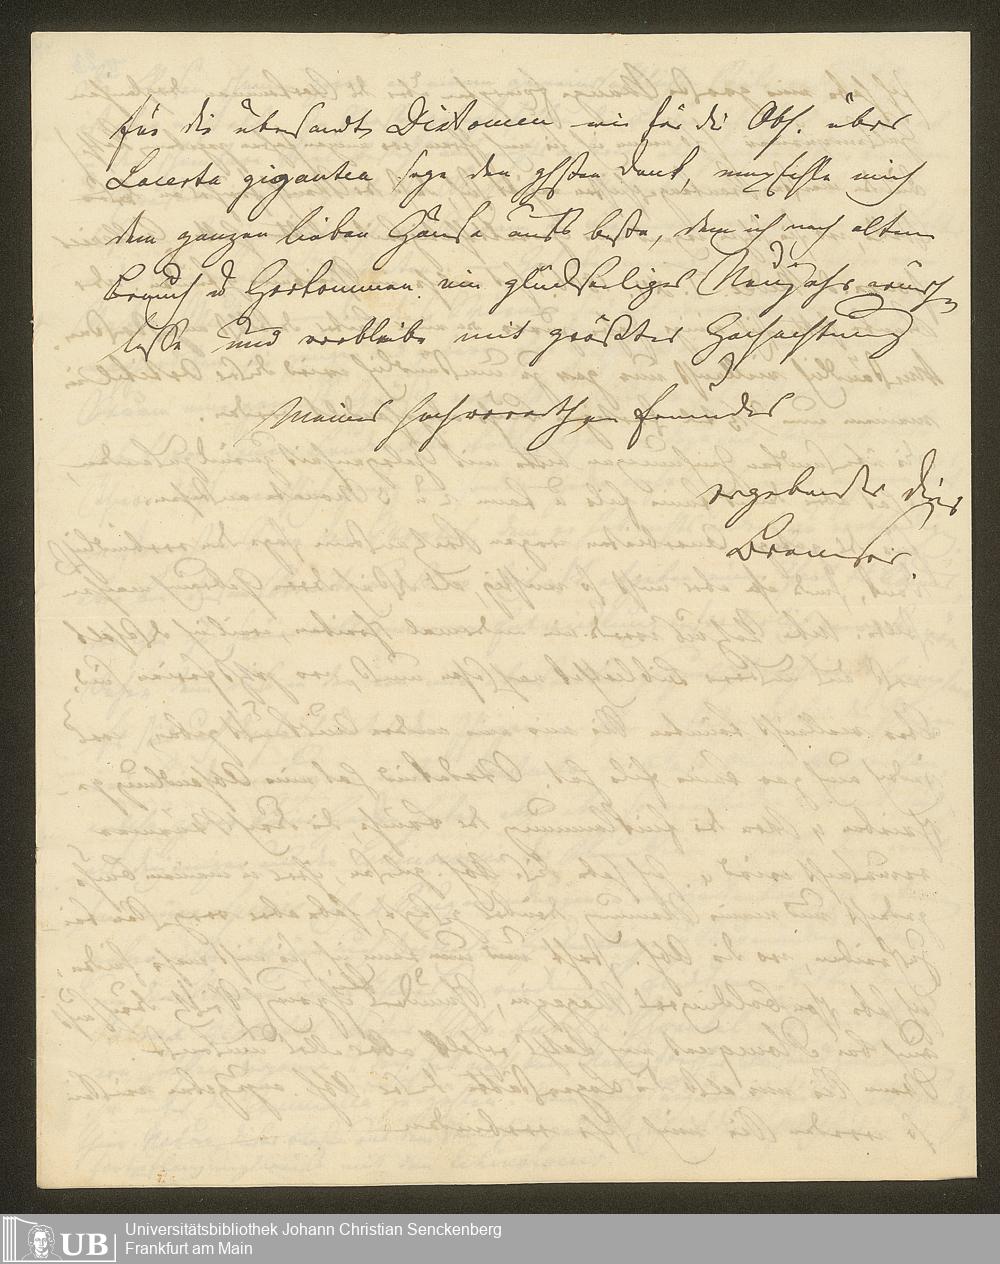 für die übersandte Distomen wie für die Abh. über
Lacerta gigantea sage den ghsten Dank, empfehle mich
dem ganzen lieben Hause aufs beste, dem ich nach altem
Brauch u Herkommen ein glückseeliges Neujahr wünschen
lasse und verbleibe mit größter Hochachtung
Meines hochverehrten Freundes
ergebenster Dier
Bremser.
UB Universitätsbibliothek Johann Christian Senckenberg
Frankfurt am Main